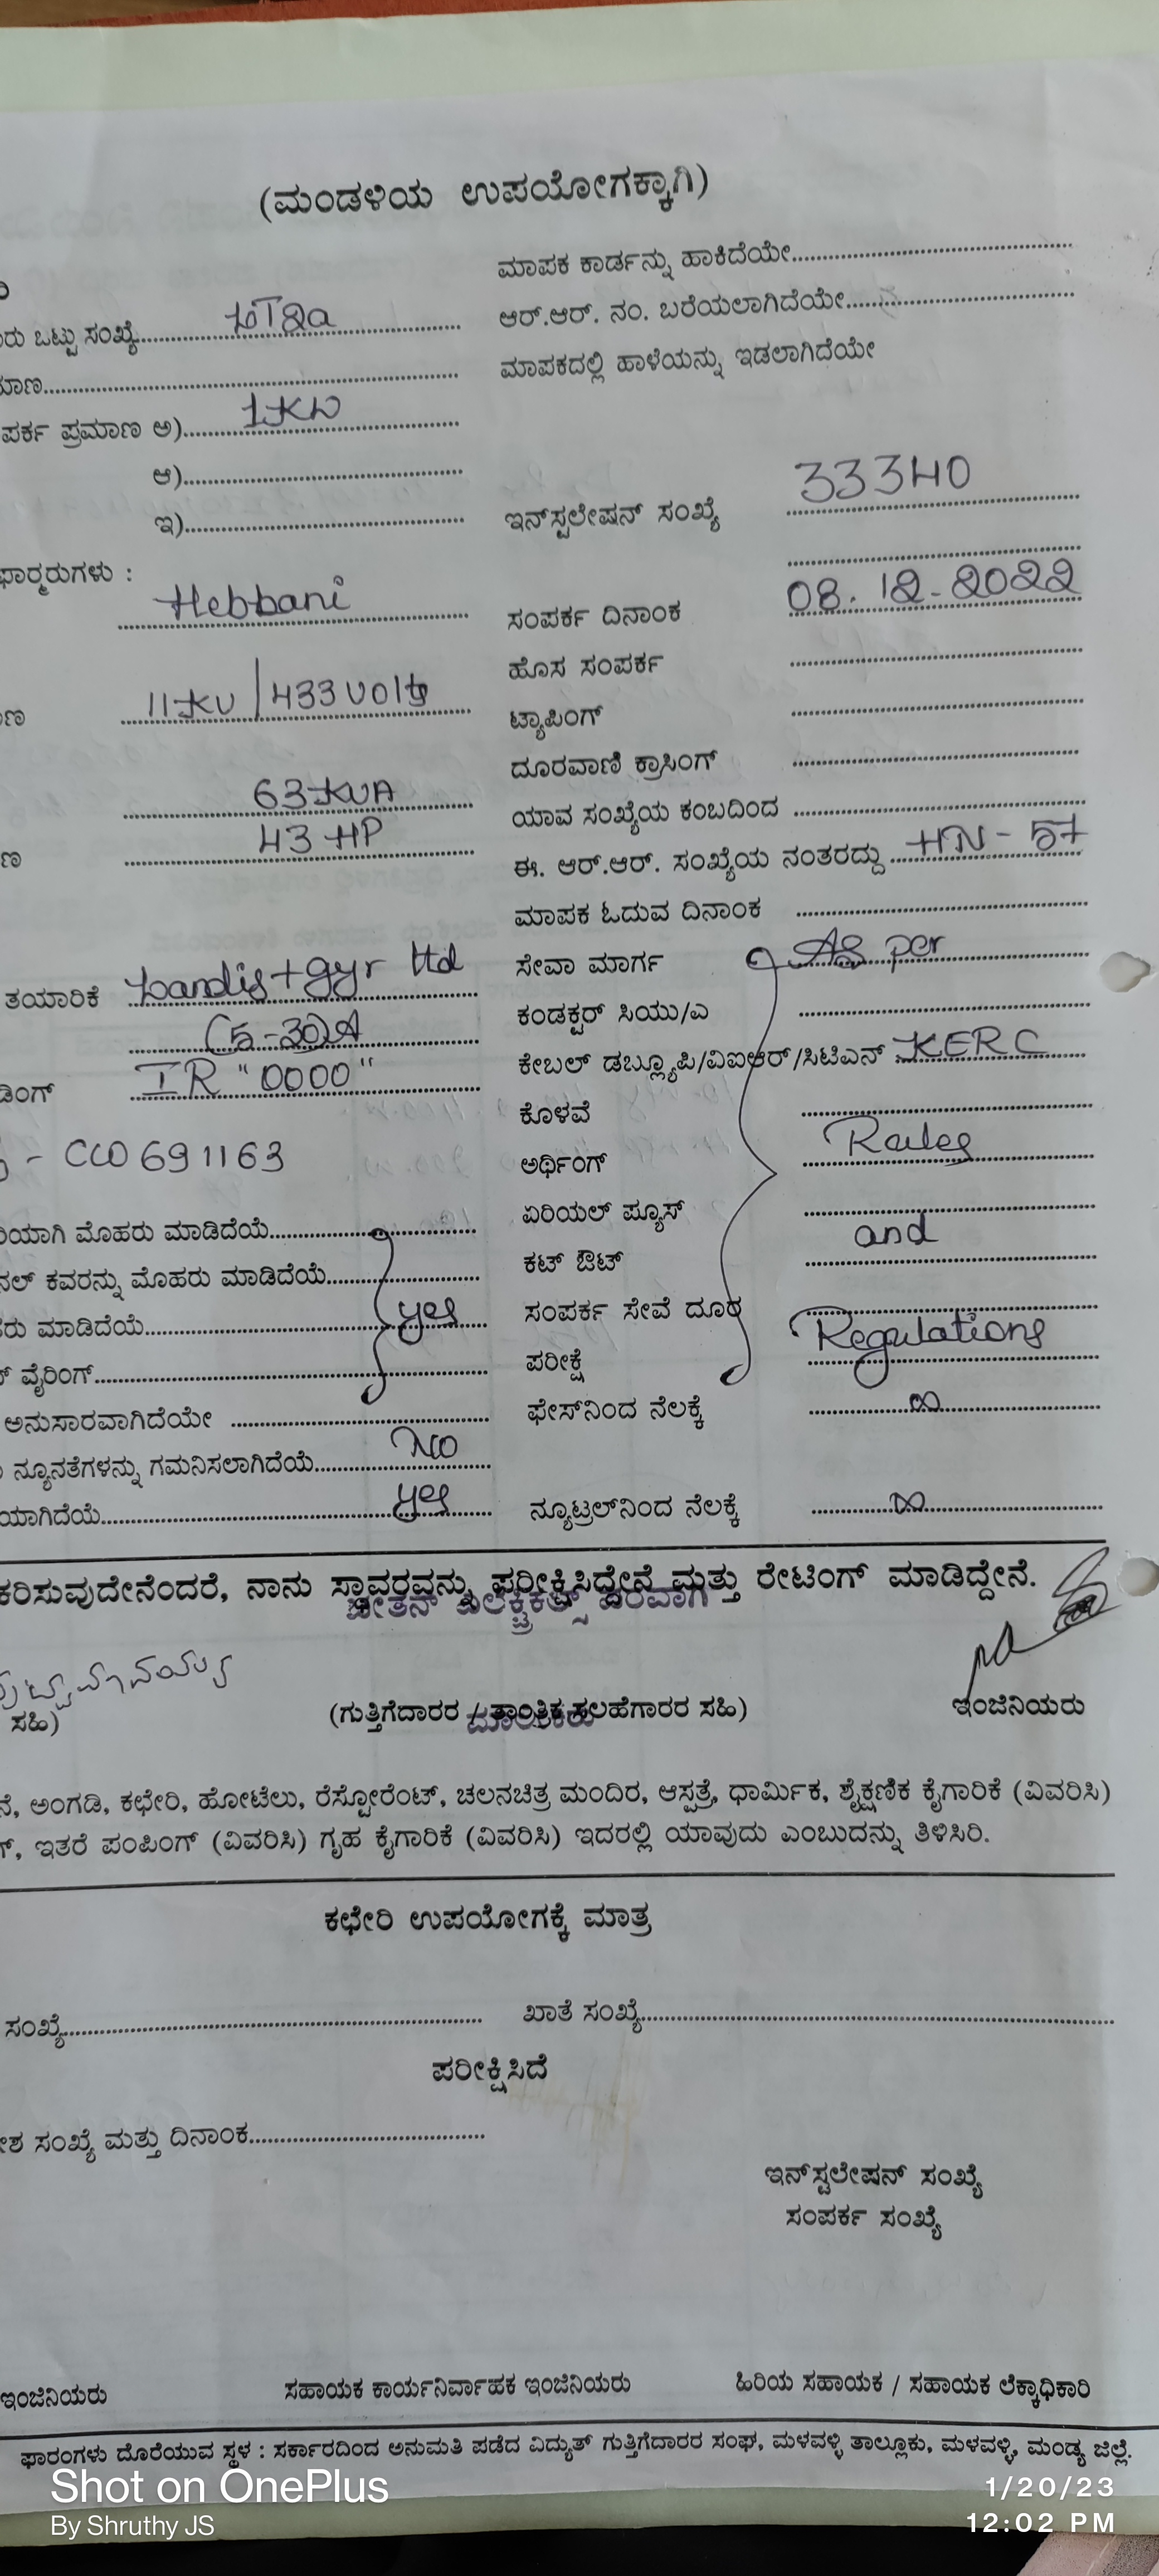 (ಮಂಡಳಿಯ ಉಪಯೋಗಕ್ಕಾಗಿ)
ಮಾಪಕ ಕಾರ್ಡನ್ನು ಹಾಕಿದೆಯೇ
ರು ಒಟ್ಟು ಸಂಖ್ಯೆ LT2a ಆರ್.ಆರ್. ನಂ. ಬರೆಯಲಾಗಿದೆಯೇ
ಮಾಣ ಮಾಪಕದಲ್ಲಿ ಹಾಳೆಯನ್ನು ಇಡಲಾಗಿದೆಯೇ
ಪರ್ಕ ಪ್ರಮಾಣ ಅ) 1KW
ಆ)
ಇ) ಇನ್‌ಸ್ಟಲೇಷನ್ ಸಂಖ್ಯೆ 33340
ಫಾರ್ಮರುಗಳು :
Hebbani ಸಂಪರ್ಕ ದಿನಾಂಕ 08.12.2022
ಹೊಸ ಸಂಪರ್ಕ
ಣ 11KV/433 Volts ಟ್ಯಾಪಿಂಗ್
ದೂರವಾಣಿ ಕ್ರಾಸಿಂಗ್
63KVA ಯಾವ ಸಂಖ್ಯೆಯ ಕಂಬದಿಂದ
ಣ 43 HP ಈ. ಆರ್.ಆರ್. ಸಂಖ್ಯೆಯ ನಂತರದ್ದು HN-57
ಮಾಪಕ ಓದುವ ದಿನಾಂಕ
ತಯಾರಿಕೆ Landis+gyr Ltd ಸೇವಾ ಮಾರ್ಗ As per
(5-30)A ಕಂಡಕ್ಟರ್ ಸಿಯು/ಎ
ಡಿಂಗ್ IR "0000" ಕೇಬಲ್ ಡಬ್ಲ್ಯೂಪಿ/ವಿಐಆರ್/ಸಿಟಿಎನ್ KERC
ಕೊಳವೆ
- CW0691163 ಅರ್ಥಿಂಗ್ Rules
ರಿಯಾಗಿ ಮೊಹರು ಮಾಡಿದೆಯೆ ಏರಿಯಲ್ ಫ್ಯೂಸ್
ನಲ್ ಕವರನ್ನು ಮೊಹರು ಮಾಡಿದೆಯೆ ಕಟ್ ಔಟ್ and
ರು ಮಾಡಿದೆಯೆ yes ಸಂಪರ್ಕ ಸೇವೆ ದೂರ
ವೈರಿಂಗ್ ಪರೀಕ್ಷೆ Regulations
ಅನುಸಾರವಾಗಿದೆಯೇ ಫೇಸ್‌ನಿಂದ ನೆಲಕ್ಕೆ ∞
ನ್ಯೂನತೆಗಳನ್ನು ಗಮನಿಸಲಾಗಿದೆಯೆ No
ಯಾಗಿದೆಯೆ yes ನ್ಯೂಟ್ರಲ್‌ನಿಂದ ನೆಲಕ್ಕೆ ∞
ಕರಿಸುವುದೇನೆಂದರೆ, ನಾನು ಸ್ಥಾವರವನ್ನು ಪರೀಕ್ಷಿಸಿದ್ದೇನೆ ಮತ್ತು ರೇಟಿಂಗ್ ಮಾಡಿದ್ದೇನೆ.
ಸಹಿ) (ಗುತ್ತಿಗೆದಾರರ / ತಾಂತ್ರಿಕ ಸಲಹೆಗಾರರ ಸಹಿ) ಇಂಜಿನಿಯರು
ನೆ, ಅಂಗಡಿ, ಕಛೇರಿ, ಹೋಟೆಲು, ರೆಸ್ಟೋರೆಂಟ್, ಚಲನಚಿತ್ರ ಮಂದಿರ, ಆಸ್ಪತ್ರೆ, ಧಾರ್ಮಿಕ, ಶೈಕ್ಷಣಿಕ ಕೈಗಾರಿಕೆ (ವಿವರಿಸಿ)
ಇತರೆ ಪಂಪಿಂಗ್ (ವಿವರಿಸಿ) ಗೃಹ ಕೈಗಾರಿಕೆ (ವಿವರಿಸಿ) ಇದರಲ್ಲಿ ಯಾವುದು ಎಂಬುದನ್ನು ತಿಳಿಸಿರಿ.
ಕಛೇರಿ ಉಪಯೋಗಕ್ಕೆ ಮಾತ್ರ
ಸಂಖ್ಯೆ ಖಾತೆ ಸಂಖ್ಯೆ
ಪರೀಕ್ಷಿಸಿದೆ
ೇಶ ಸಂಖ್ಯೆ ಮತ್ತು ದಿನಾಂಕ
ಇನ್‌ಸ್ಟಲೇಷನ್ ಸಂಖ್ಯೆ
ಸಂಪರ್ಕ ಸಂಖ್ಯೆ
ಇಂಜಿನಿಯರು ಸಹಾಯಕ ಕಾರ್ಯನಿರ್ವಾಹಕ ಇಂಜಿನಿಯರು ಹಿರಿಯ ಸಹಾಯಕ / ಸಹಾಯಕ ಲೆಕ್ಕಾಧಿಕಾರಿ
ಫಾರಂಗಳು ದೊರೆಯುವ ಸ್ಥಳ : ಸರ್ಕಾರದಿಂದ ಅನುಮತಿ ಪಡೆದ ವಿದ್ಯುತ್ ಗುತ್ತಿಗೆದಾರರ ಸಂಘ, ಮಳವಳ್ಳಿ ತಾಲ್ಲೂಕು, ಮಳವಳ್ಳಿ, ಮಂಡ್ಯ ಜಿಲ್ಲೆ.
Shot on OnePlus 1/20/23
By Shruthy JS 12:02 PM